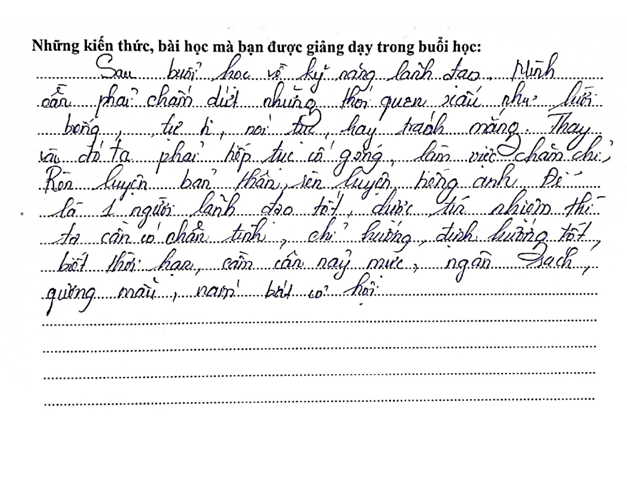 Những kiến thức, bài học mà bạn được giảng dạy trong buổi học:
Sau buổi học về kỹ năng lãnh đạo. Mình
cần phải chấm dứt những thói quen xấu như lười
biếng, tự ti, nói tục, hay tránh mắng. Thay
vào đó ta phải tiếp tục cố gắng, làm việc chăm chỉ,
Rèn luyện bản thân, rèn luyện tiếng anh. Để
là 1 người lãnh đạo tốt, được tín nhiệm thì
ta cần có chân tình, chí hướng, định hướng tốt,
biết thời hạn, cầm cân nảy mực, ngăn sạch,
gương mẫu, nắm bắt cơ hội